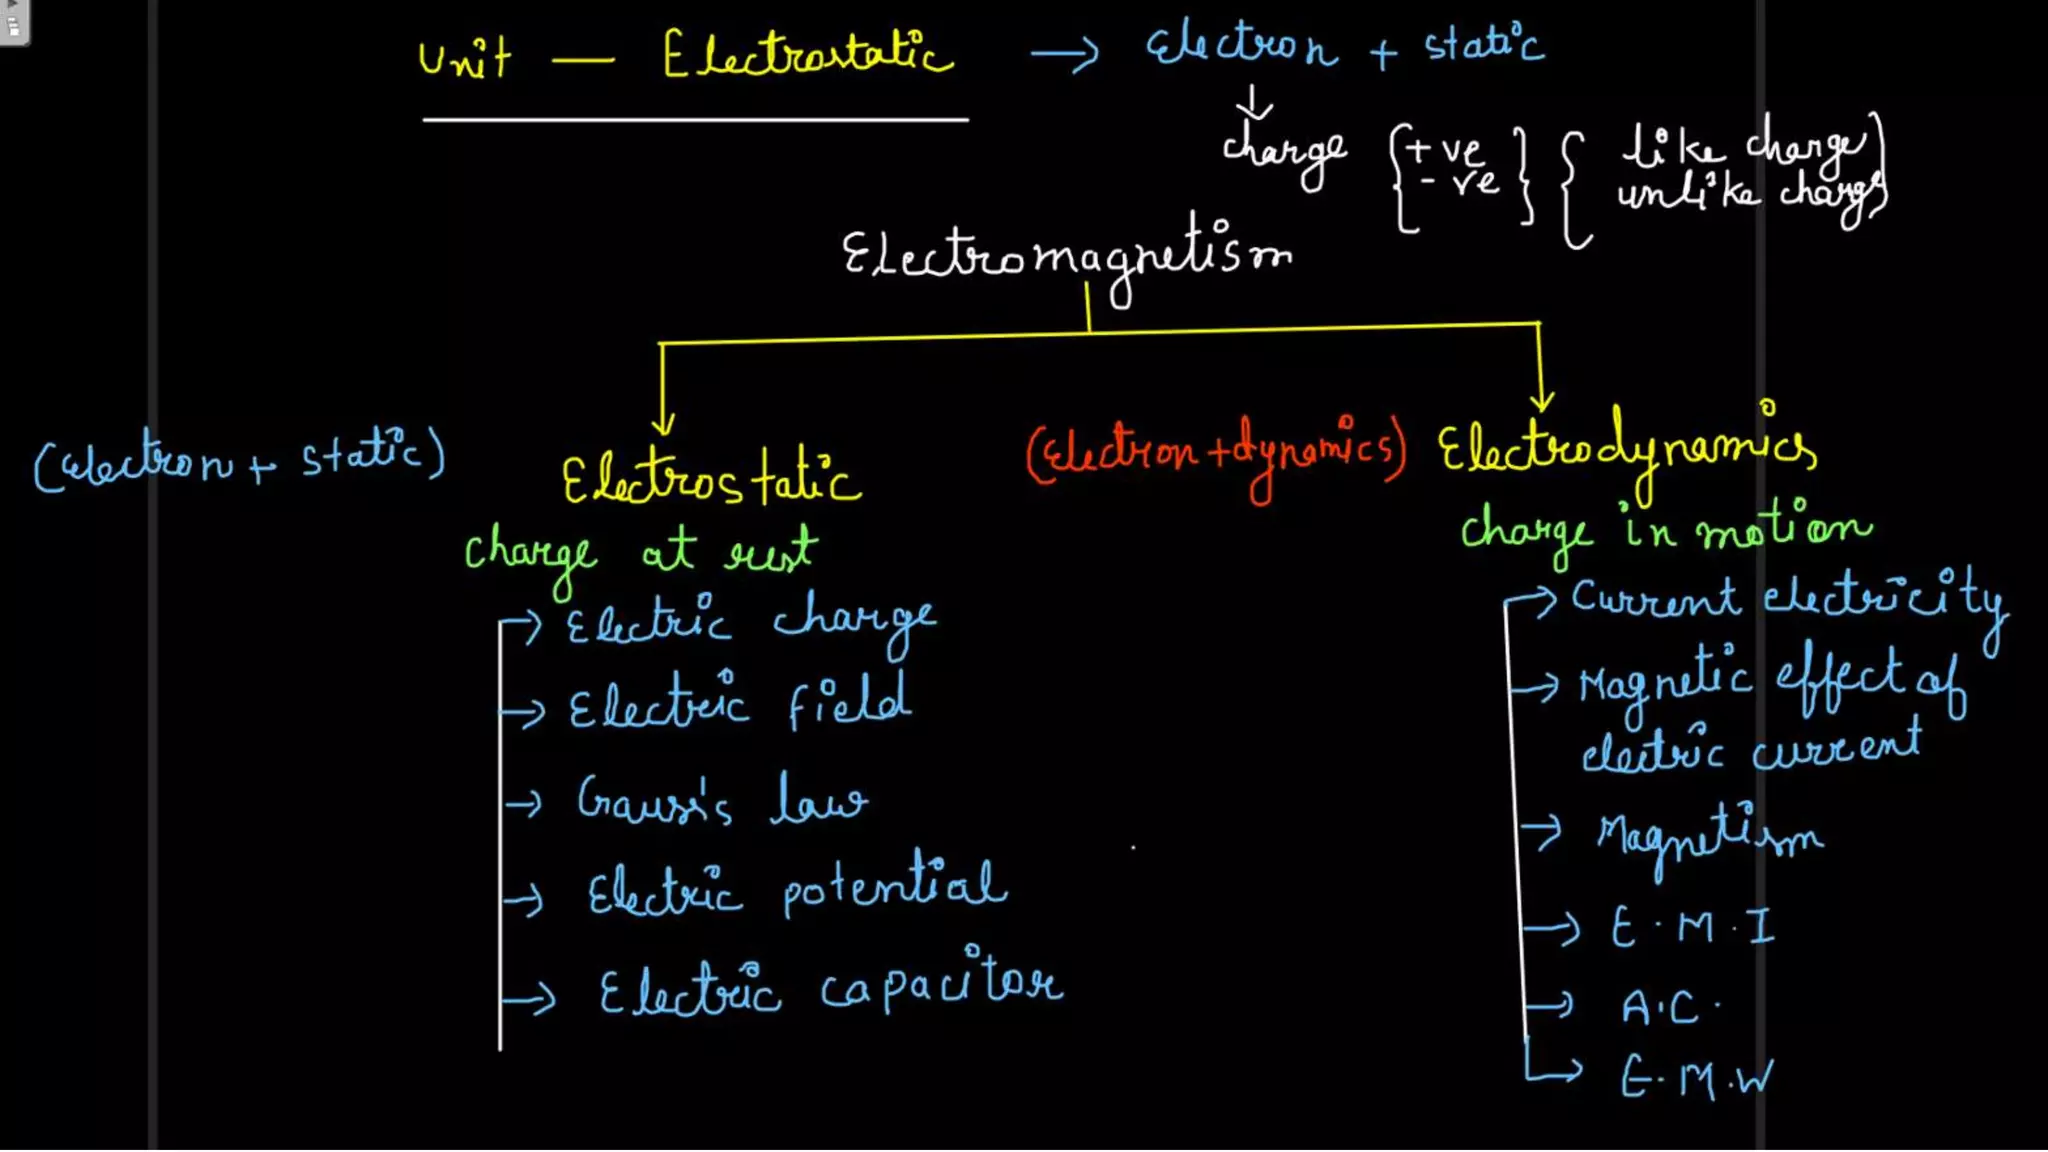 Unit — Electrostatic → Electron + static
↓
charge { +ve } { like charge }
-ve unlike charge
Electromagnetism
(Electron + static) Electrostatic
(Electron + dynamics) Electrodynamics
charge at rest
charge in motion
→ Electric charge
→ Electric field
→ Gauss's law
→ Electric potential
→ Electric capacitor
→ Current electricity
→ Magnetic effect of
electric current
→ Magnetism
→ E.M.I
→ A.C.
→ E.M.W